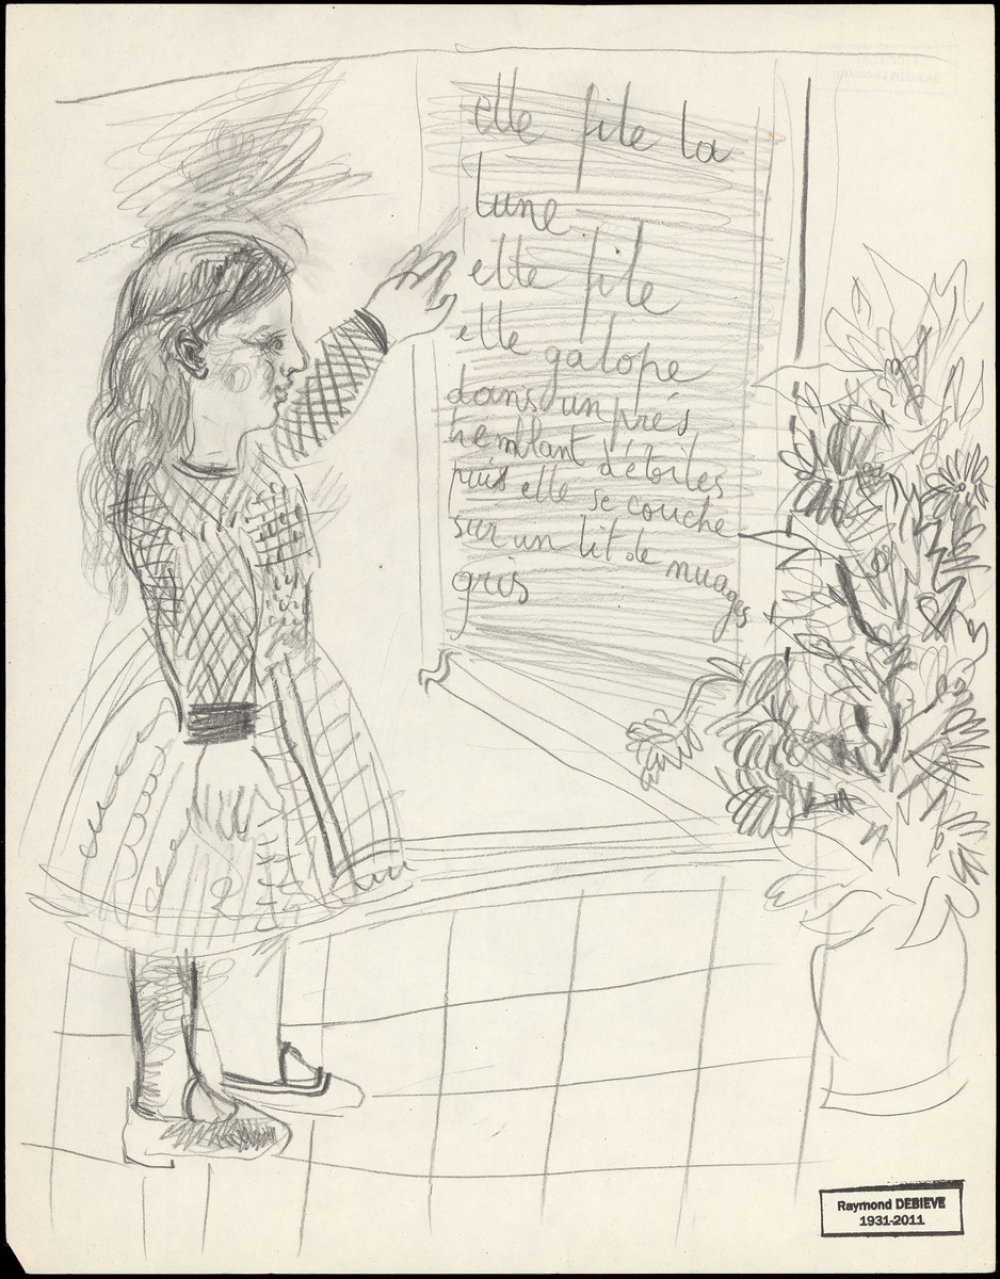 elle file la
lune
elle file
elle galope
dans un prés
tremblant d'étoiles
puis elle se couche
sur un lit de nuages
gris
Raymond DEBIEVE
1931-2011